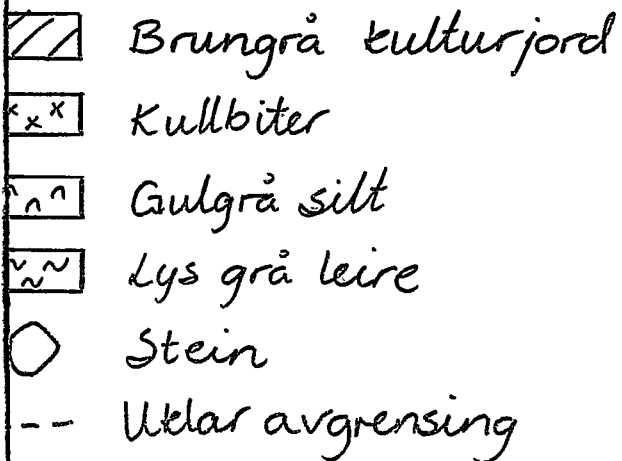 Brungrå kulturjord
Kullbiter
Gulgrå silt
Lys grå leire
Stein
Uklar avgrensing